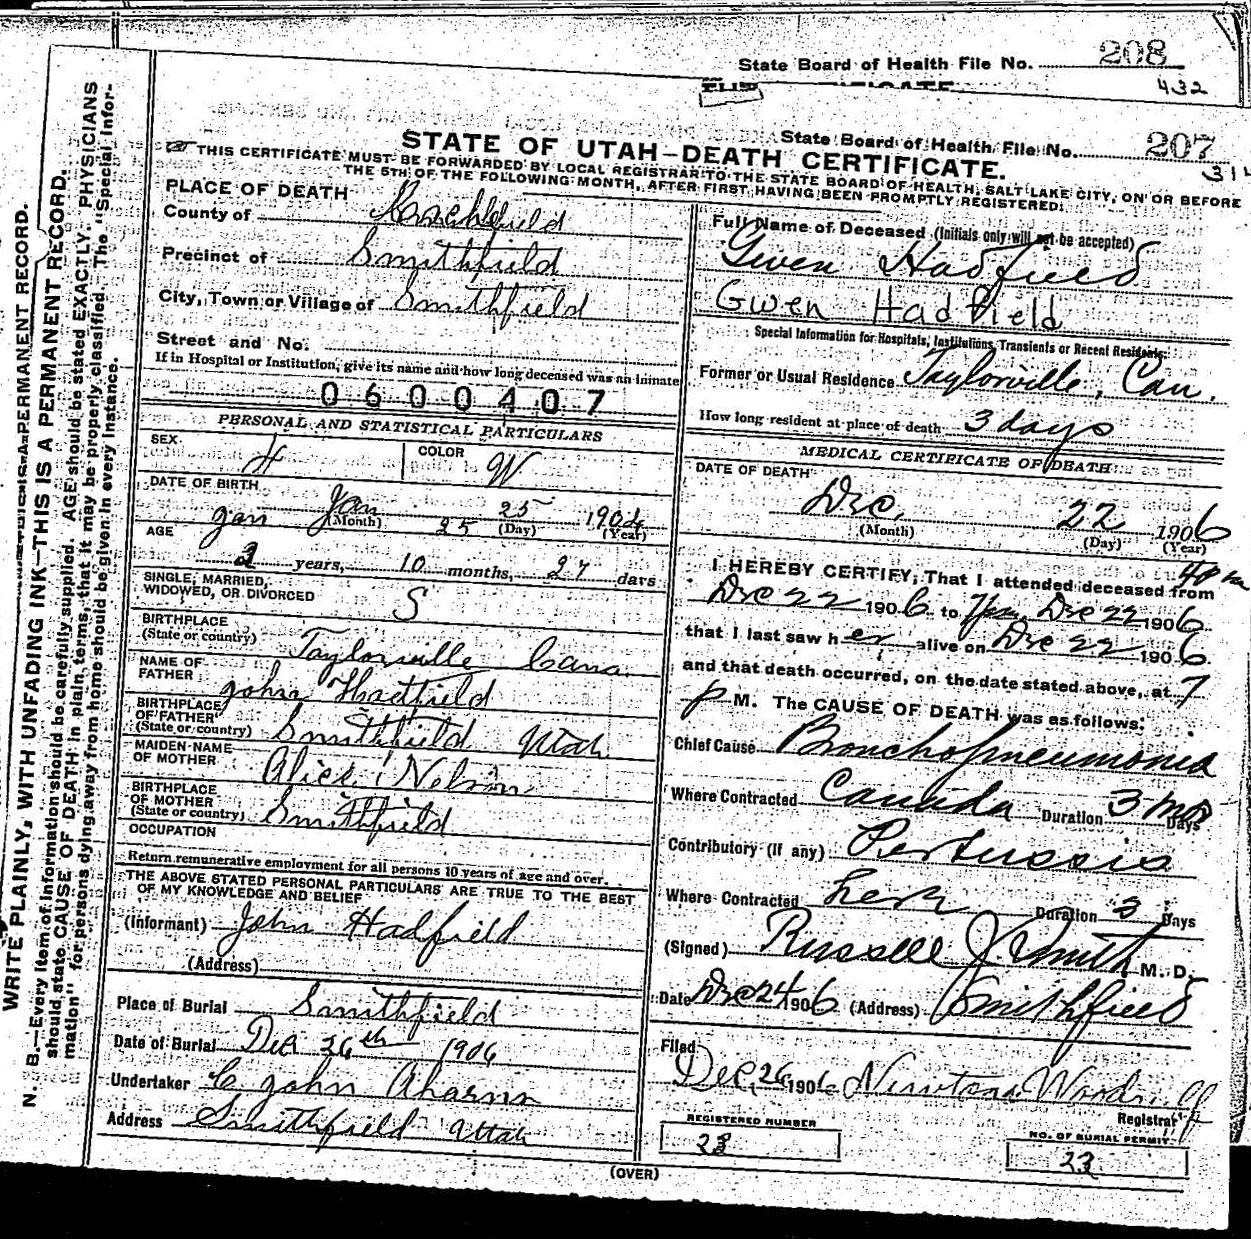 State Board of Health File No. 208
432
State Board of Health File No. 207
314
STATE OF UTAH—DEATH CERTIFICATE.
THIS CERTIFICATE MUST BE FORWARDED BY LOCAL REGISTRAR TO THE STATE BOARD OF HEALTH, SALT LAKE CITY, ON OR BEFORE
THE 5TH OF THE FOLLOWING MONTH, AFTER FIRST HAVING BEEN PROMPTLY REGISTERED.
WRITE PLAINLY, WITH UNFADING INK—THIS IS A PERMANENT RECORD.
N. B.—Every item of information should be carefully supplied. AGE should be stated EXACTLY. PHYSICIANS
should state CAUSE OF DEATH in plain terms, that it may be properly classified. The "Special Infor-
mation" for persons dying away from home should be given in every instance.
PLACE OF DEATH
County of
Precinct of Smithfield
City, Town or Village of Smithfield
Street and No.
If in Hospital or Institution, give its name and how long deceased was an inmate
0600407
PERSONAL AND STATISTICAL PARTICULARS
SEX
COLOR W
DATE OF BIRTH
Jan Jan 25 25 1904
(Month) (Day) (Year)
AGE
2 years, 10 months, 27 days
SINGLE, MARRIED,
WIDOWED, OR DIVORCED S
BIRTHPLACE
(State or country) Taylorville Cana
NAME OF
FATHER John Hadfield
BIRTHPLACE
OF FATHER
(State or country) Smithfield Utah
MAIDEN NAME
OF MOTHER Alice Nelson
BIRTHPLACE
OF MOTHER
(State or country) Smithfield
OCCUPATION
Return remunerative employment for all persons 10 years of age and over.
THE ABOVE STATED PERSONAL PARTICULARS ARE TRUE TO THE BEST
OF MY KNOWLEDGE AND BELIEF
(Informant) John Hadfield
(Address)
Place of Burial Smithfield
Date of Burial Dec 26th 1906
Undertaker C John
Address Smithfield Utah
Full Name of Deceased (Initials only will not be accepted)
Gwen Hadfield
Gwen Hadfield
Special Information for Hospitals, Institutions, Transients or Recent Residents.
Former or Usual Residence Taylorville, Can.
How long resident at place of death 3 days
MEDICAL CERTIFICATE OF DEATH
DATE OF DEATH
Dec. 22 1906
(Month) (Day) (Year)
I HEREBY CERTIFY, That I attended deceased from
Dec 22 1906 to 7pm Dec 22 1906
that I last saw her alive on Dec 22 1906
and that death occurred, on the date stated above, at 7
p M. The CAUSE OF DEATH was as follows:
Chief Cause Bronchopneumonia
Where Contracted Canada Duration 3 mos Days
Contributory (if any) Pertussis
Where Contracted Duration 3 Days
(Signed) Russell J. Smith M. D.
Date Dec 24 1906 (Address) Smithfield
Filed
Dec. 26 1906 Newton Woodruff
Registrar
REGISTERED NUMBER
23
NO. OF BURIAL PERMIT
23
(OVER)